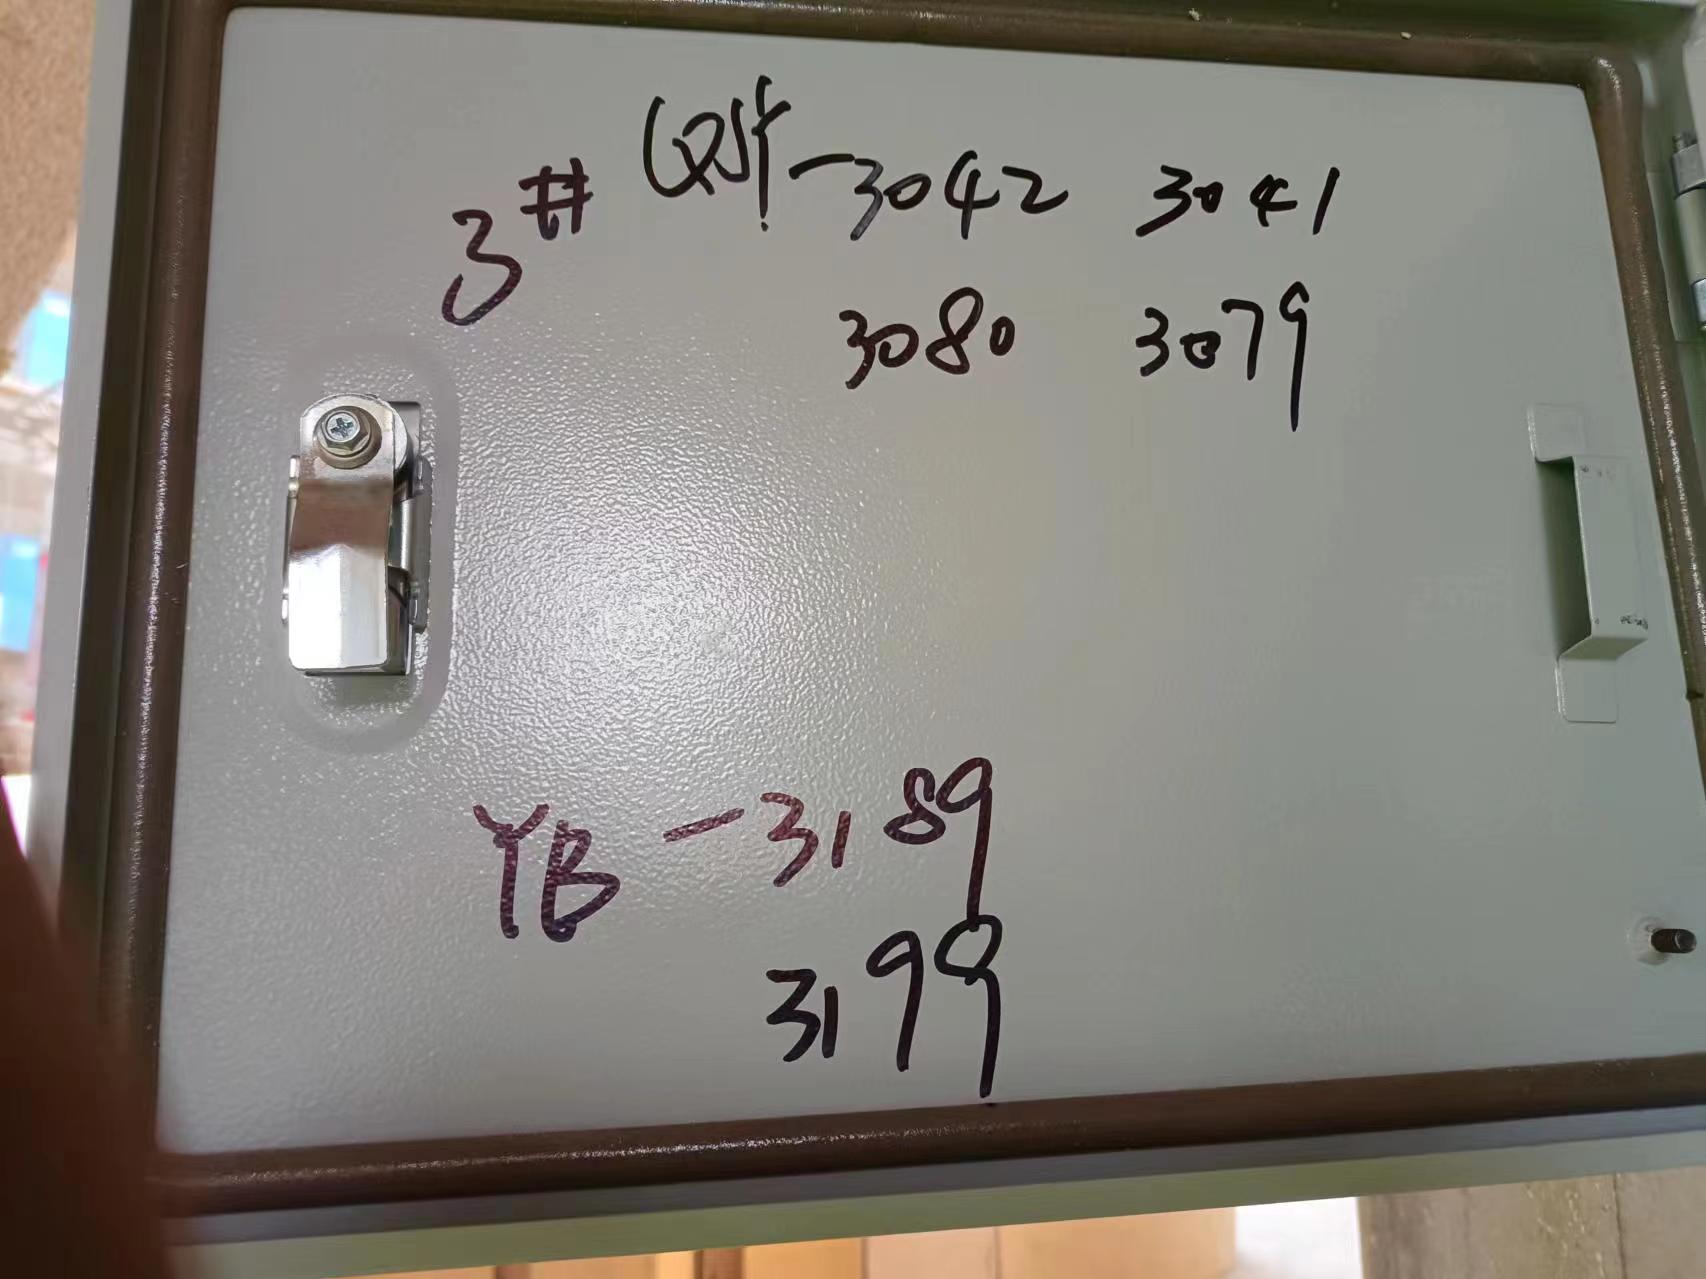 3# QSY-3042 3041
3080 3079
YB-3189
3199